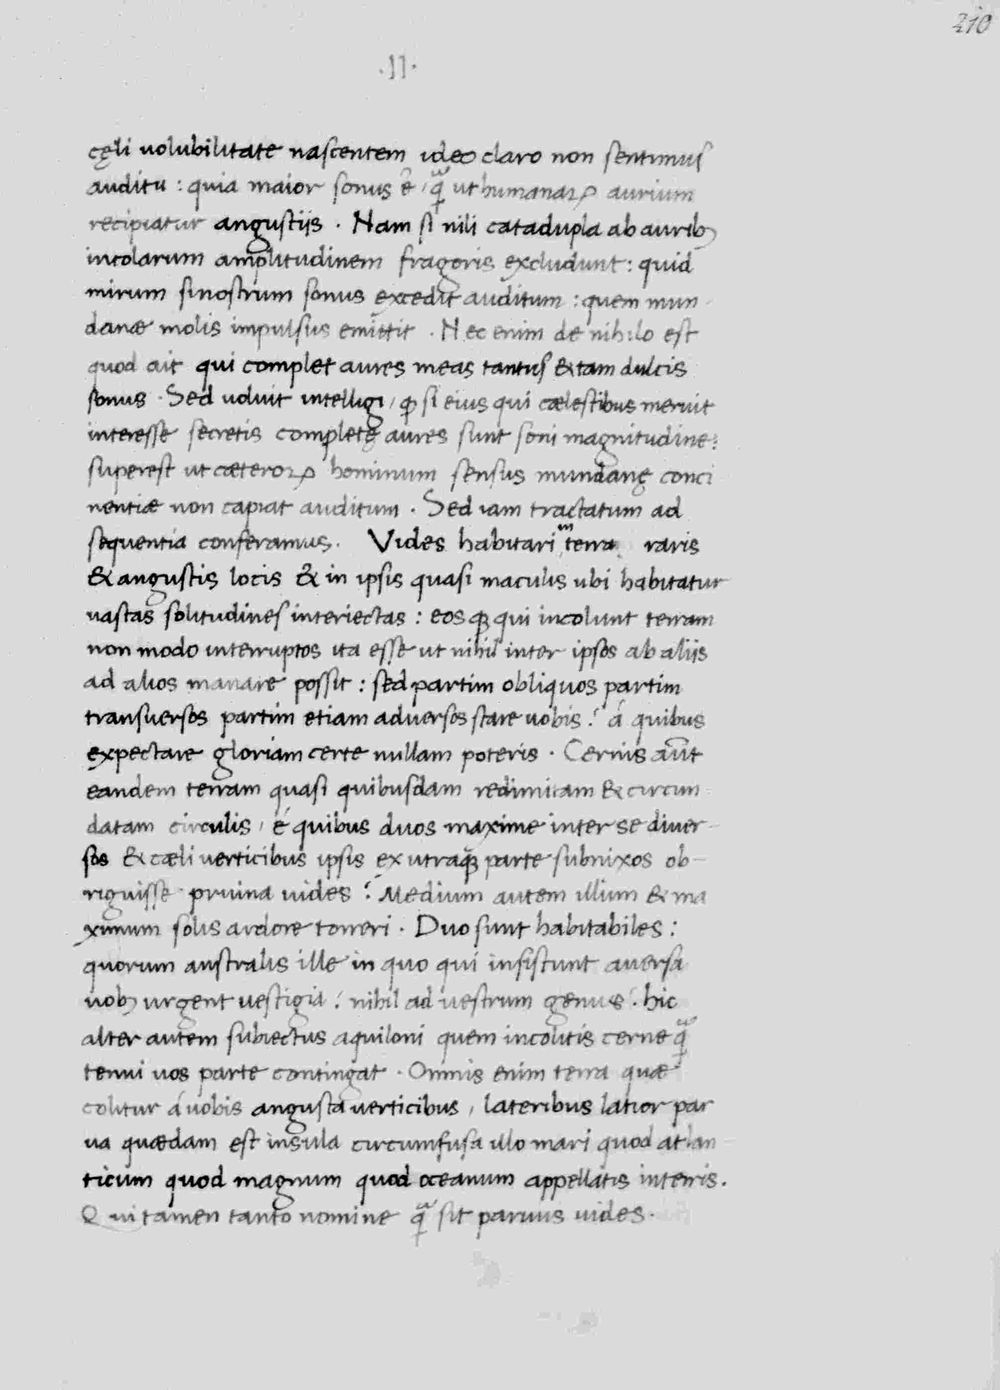 210
·II·
cęli volubilitate nascentem ideo claro non sentimus
auditu : quia maior sonus ē / q̃ ut humanaꝝ aurium
recipiatur angustiis . Nam si nili catadupla ab auribꝫ
incolarum amplitudinem fragoris excludunt : quid
mirum si nostrum sonus excedit auditum : quem mun
danæ molis impulsus emittit . Nec enim de nihilo est
quod ait qui complet aures meas tantus & tam dulcis
sonus . Sed voluit intelligi / ꝙ si eius qui cælestibus meruit
interesse secretis completę aures sunt soni magnitudine :
superest ut cæteroꝝ hominum sensus mundanę conci
nentiæ non capiat auditum . Sed iam tractatum ad
sequentia conferamus . Vides habitari in terra raris
& angustis locis & in ipsis quasi maculis ubi habitatur
vastas solitudines interiectas : eos qꝫ qui incolunt terram
non modo interruptos ita esse ut nihil inter ipsos ab aliis
ad alios manare possit : sed partim obliquos partim
transversos partim etiam adversos stare vobis : á quibus
expectare gloriam certe nullam poteris . Cernis aūt
eandem terram quasi quibusdam redimitam & circun
datam circulis / é quibus duos maxime inter se diver-
sos & cæli verticibus ipsis ex utraqꝫ parte subnixos ob-
riguisse pruina vides : Medium autem illum & ma
ximum solis ardore torreri . Duo sunt habitabiles :
quorum australis ille in quo qui insistunt aversa
vobꝫ urgent vestigia : nihil ad vestrum genus : hic
alter autem subiectus aquiloni quem incolitis cerne q̃
tenui vos parte contingat . Omnis enim terra quæ
colitur á vobis angusta verticibus , lateribus latior par
va quædam est insula circumfusa illo mari quod atlan
ticum quod magnum quod oceanum appellatis in terris .
Qui tamen tanto nomine q̃ sit parvus vides .